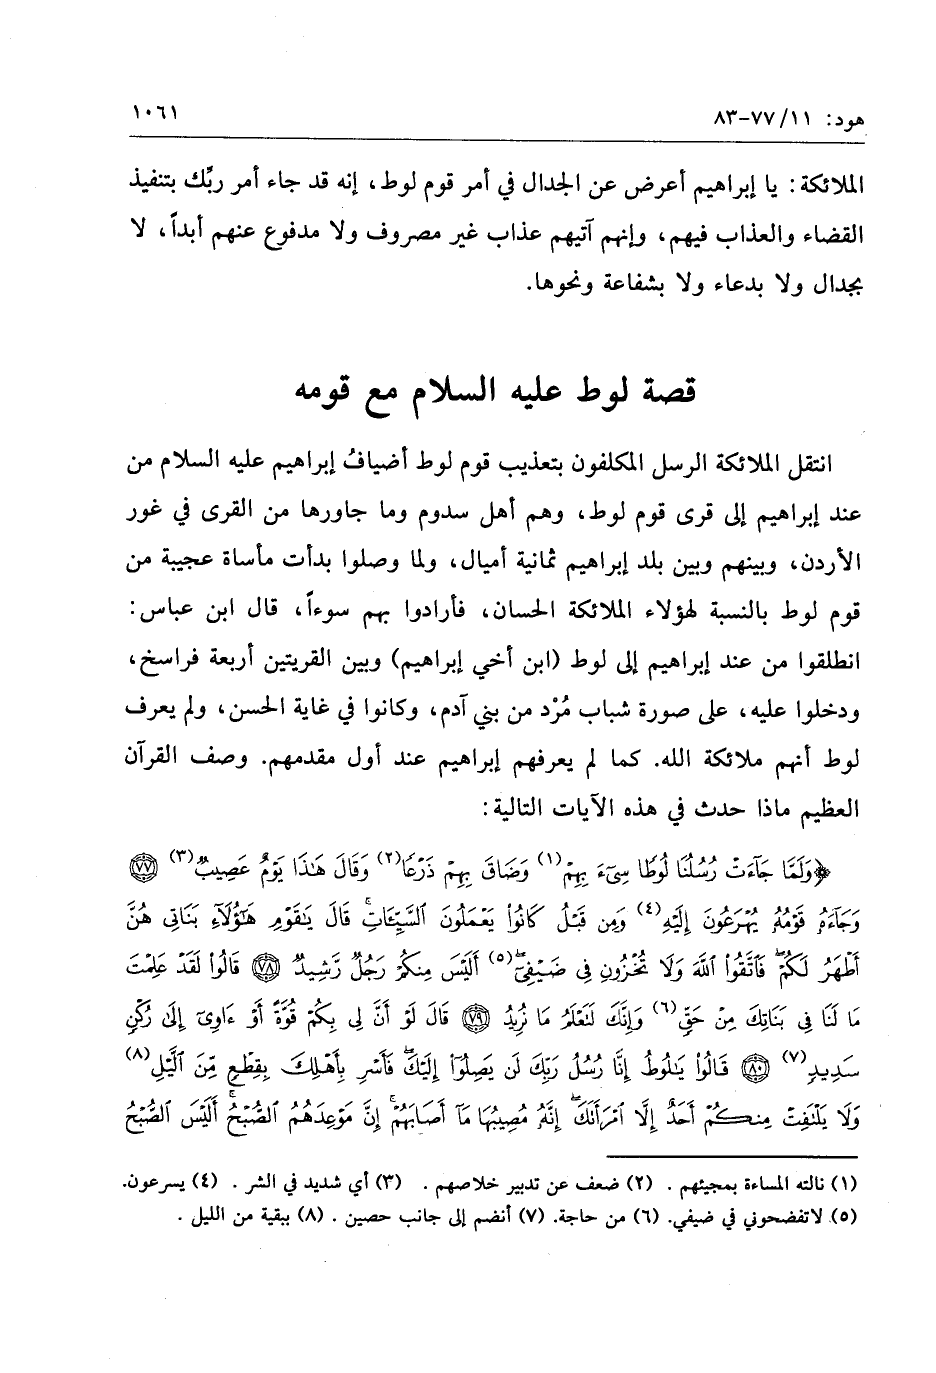 هود: ١١/ ٧٧-٨٣
١٠٦١
الملائكة: يا إبراهيم أعرض عن الجدال في أمر قوم لوط، إنه قد جاء أمر ربِّك بتنفيذ
القضاء والعذاب فيهم، وإنهم آتيهم عذاب غير مصروف ولا مدفوع عنهم أبداً، لا
بجدال ولا بدعاء ولا بشفاعة ونحوها.
قصة لوط عليه السلام مع قومه
انتقل الملائكة الرسل المكلفون بتعذيب قوم لوط أضيافُ إبراهيم عليه السلام من
عند إبراهيم إلى قرى قوم لوط، وهم أهل سدوم وما جاورها من القرى في غور
الأردن، وبينهم وبين بلد إبراهيم ثمانية أميال، ولما وصلوا بدأت مأساة عجيبة من
قوم لوط بالنسبة لهؤلاء الملائكة الحسان، فأرادوا بهم سوءاً، قال ابن عباس:
انطلقوا من عند إبراهيم إلى لوط (ابن أخي إبراهيم) وبين القريتين أربعة فراسخ،
ودخلوا عليه، على صورة شباب مُرْد من بني آدم، وكانوا في غاية الحسن، ولم يعرف
لوط أنهم ملائكة الله. كما لم يعرفهم إبراهيم عند أول مقدمهم. وصف القرآن
العظيم ماذا حدث في هذه الآيات التالية:
﴿وَلَمَّا جَآءَتْ رُسُلُنَا لُوطًا سِىٓءَ بِهِمْ(١) وَضَاقَ بِهِمْ ذَرْعًا(٢) وَقَالَ هَٰذَا يَوْمٌ عَصِيبٌ(٣) ٧٧
وَجَآءَهُۥ قَوْمُهُۥ يُهْرَعُونَ إِلَيْهِ(٤) وَمِن قَبْلُ كَانُوا۟ يَعْمَلُونَ ٱلسَّيِّـَٔاتِۚ قَالَ يَٰقَوْمِ هَٰٓؤُلَآءِ بَنَاتِى هُنَّ
أَطْهَرُ لَكُمْۖ فَٱتَّقُوا۟ ٱللَّهَ وَلَا تُخْزُونِ فِى ضَيْفِىٓۖ(٥) أَلَيْسَ مِنكُمْ رَجُلٌ رَّشِيدٌ ٧٨ قَالُوا۟ لَقَدْ عَلِمْتَ
مَا لَنَا فِى بَنَاتِكَ مِنْ حَقٍّ(٦) وَإِنَّكَ لَتَعْلَمُ مَا نُرِيدُ ٧٩ قَالَ لَوْ أَنَّ لِى بِكُمْ قُوَّةً أَوْ ءَاوِىٓ إِلَىٰ رُكْنٍ
شَدِيدٍ(٧) ٨٠ قَالُوا۟ يَٰلُوطُ إِنَّا رُسُلُ رَبِّكَ لَن يَصِلُوٓا۟ إِلَيْكَۖ فَأَسْرِ بِأَهْلِكَ بِقِطْعٍ مِّنَ ٱلَّيْلِ(٨)
وَلَا يَلْتَفِتْ مِنكُمْ أَحَدٌ إِلَّا ٱمْرَأَتَكَۖ إِنَّهُۥ مُصِيبُهَا مَآ أَصَابَهُمْۚ إِنَّ مَوْعِدَهُمُ ٱلصُّبْحُۚ أَلَيْسَ ٱلصُّبْحُ
(١) نالته المساءة بمجيئهم . (٢) ضعف عن تدبير خلاصهم . (٣) أي شديد في الشر . (٤) يسرعون.
(٥) لاتفضحوني في ضيفي. (٦) من حاجة. (٧) أنضم إلى جانب حصين . (٨) ببقية من الليل .